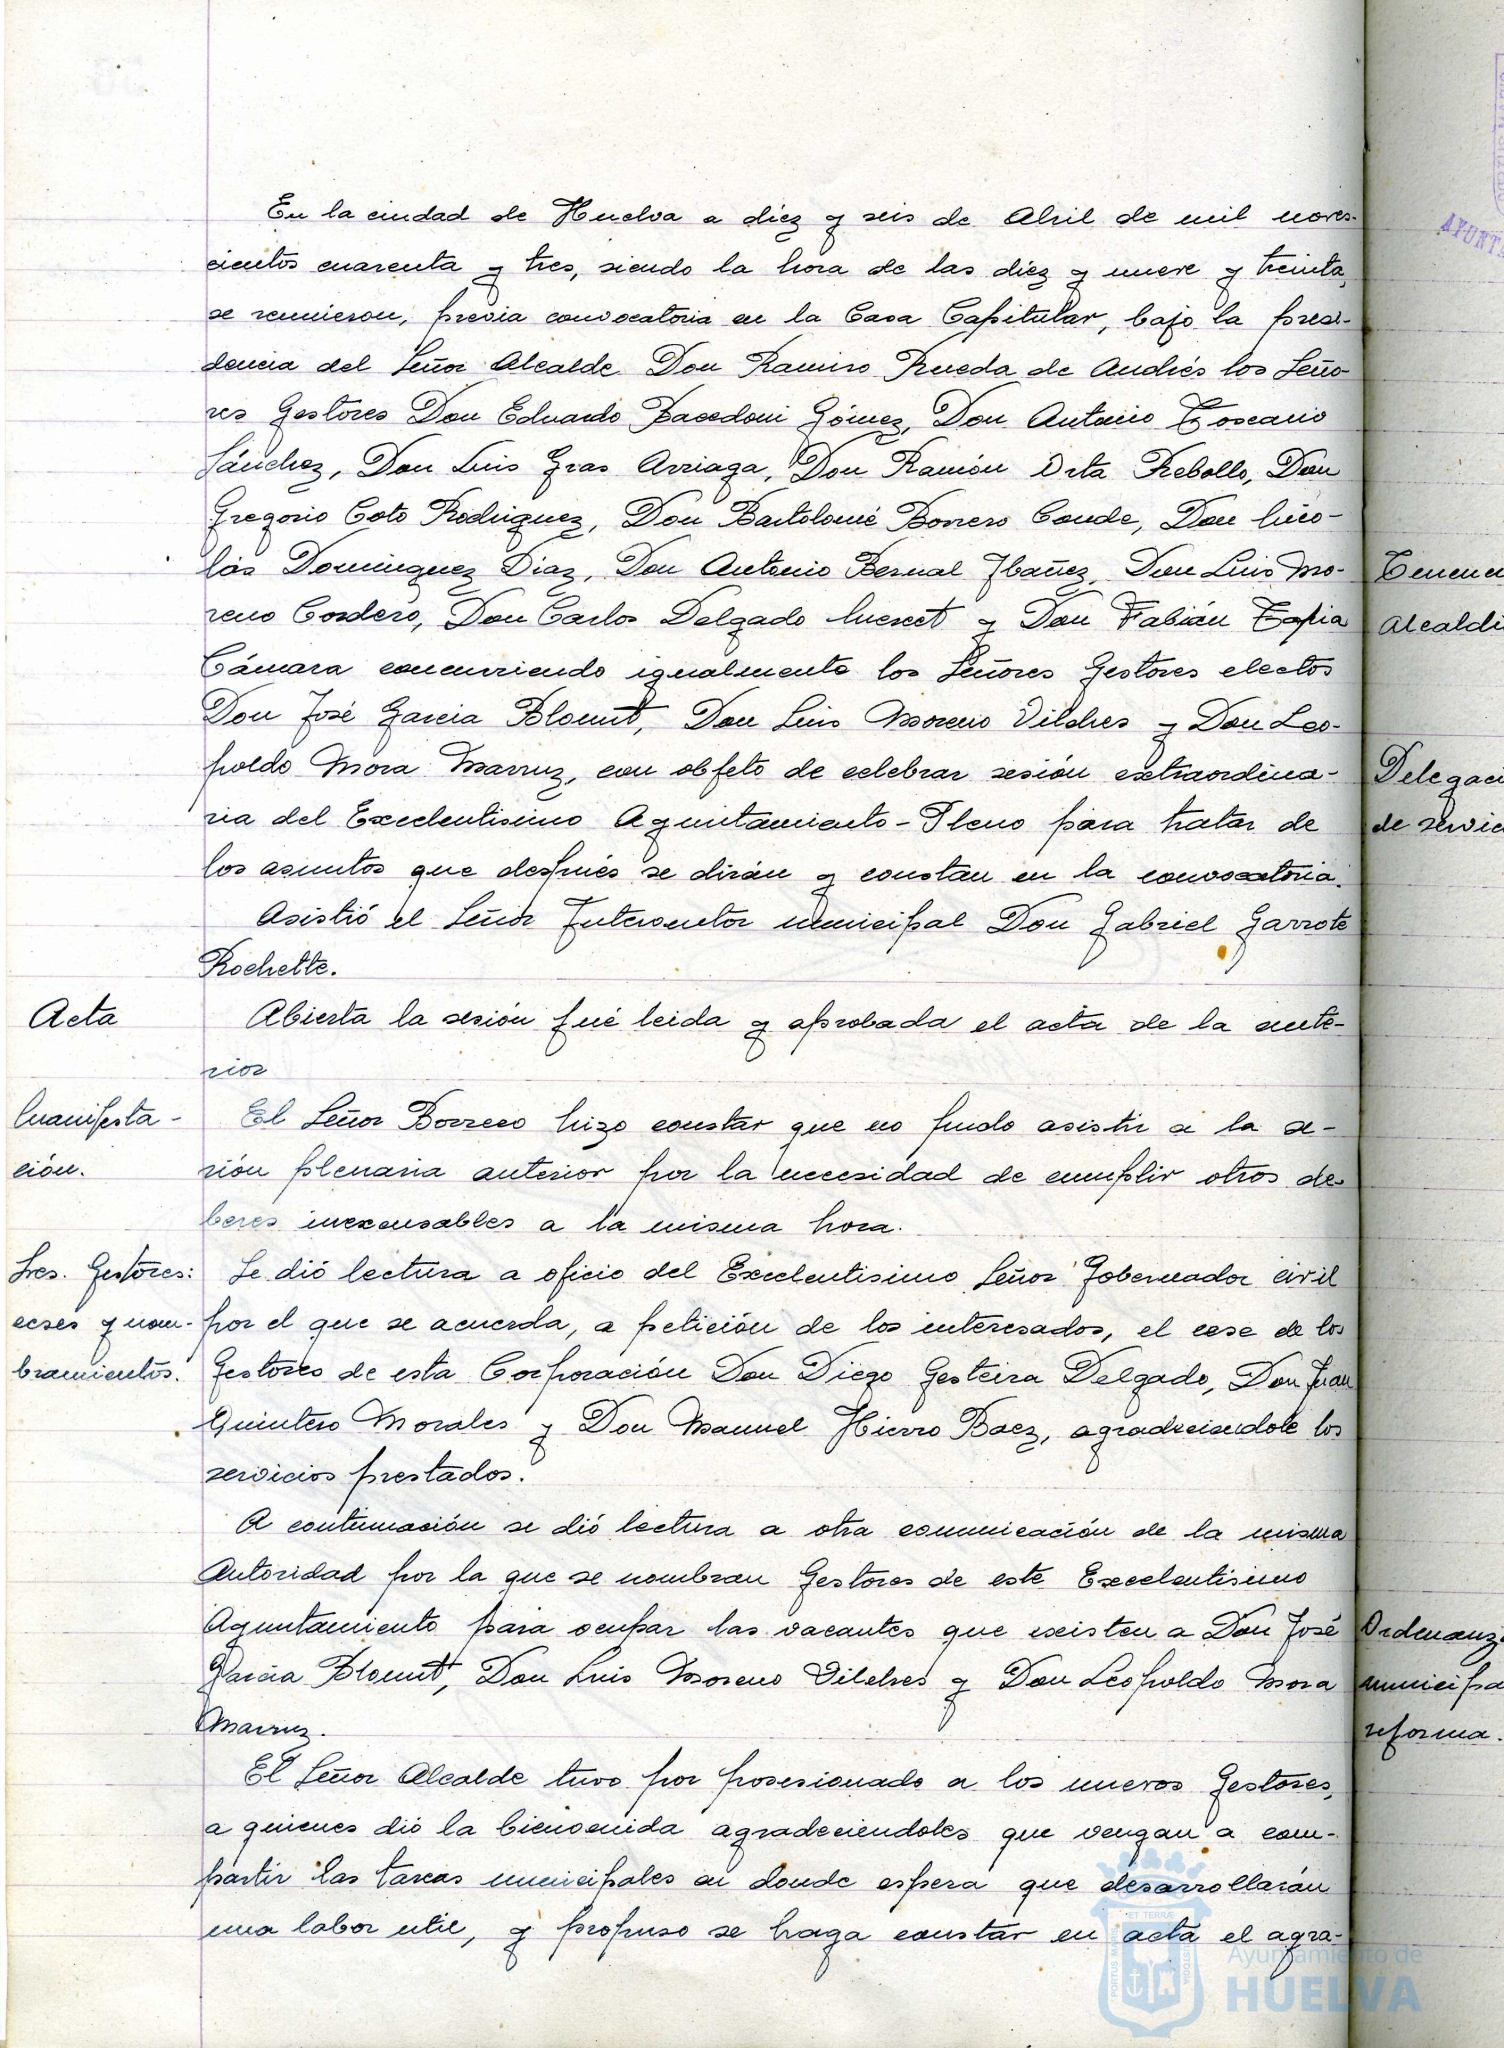 En la ciudad de Huelva a diez y seis de Abril de mil noves-
cientos cuarenta y tres, siendo la hora de las diez y nueve y treinta,
se reunieron, previa convocatoria en la Casa Capitular, bajo la presi-
dencia del Señor Alcalde Don Ramiro Rueda de Andrés los Seño-
res Gestores Don Eduardo Bacedoni Gómez, Don Antonio Toscano
Sánchez, Don Luis Gras Arriaga, Don Ramón Orta Rebollo, Don
Gregorio Coto Rodriguez, Don Bartolomé Borrero Conde, Don Nico-
lás Dominguez Diaz, Don Antonio Bernal Ibañez, Don Luis Mo-
reno Cordero, Don Carlos Delgado y Don Fabián Tapia
Cámara concurriendo igualmente los Señores Gestores electos
Don José Garcia Blount, Don Luis Moreno Vilches y Don Leo-
poldo Mora Marruz, con objeto de celebrar sesión extraordina-
ria del Excelentisimo Ayuntamiento-Pleno para tratar de
los asuntos que después se dirán y constan en la convocatoria.
Asistió el Señor Interventor municipal Don Gabriel Garrote
Rochette.
Acta
Abierta la sesión fué leida y aprobada el acta de la ante-
rior
Manifesta-
ción.
El Señor Borrero hizo constar que no pudo asistir a la se-
sión plenaria anterior por la necesidad de cumplir otros de-
beres inexcusables a la misma hora.
Sres. Gestores:
ceses y nom-
bramientos.
Se dió lectura a oficio del Excelentisimo Señor Gobernador civil
por el que se acuerda, a petición de los interesados, el cese de los
Gestores de esta Corporación Don Diego Gesteira Delgado, Don Juan
Quintero Morales y Don Manuel Hierro Baez, agradeciendole los
servicios prestados.
A continuación se dió lectura a otra comunicación de la misma
Autoridad por la que se nombran Gestores de este Excelentisimo
Ayuntamiento para ocupar las vacantes que existen a Don José
Garcia Blount, Don Luis Moreno Vilches y Don Leopoldo Mora
Marruz.
El Señor Alcalde tuvo por posesionado a los nuevos Gestores,
a quienes dió la bienvenida agradeciendoles que vengan a com-
partir las tareas municipales en donde espera que desarrollarán
una labor util, y propuso se haga constar en acta el agra-
Tenenc
Alcaldi
Delegaci
de servic
Ordenanz
municipa
reforma.
AYUNT
PORTUS MARIS ET TERRÆ CUSTODIA
Ayuntamiento de
HUELVA